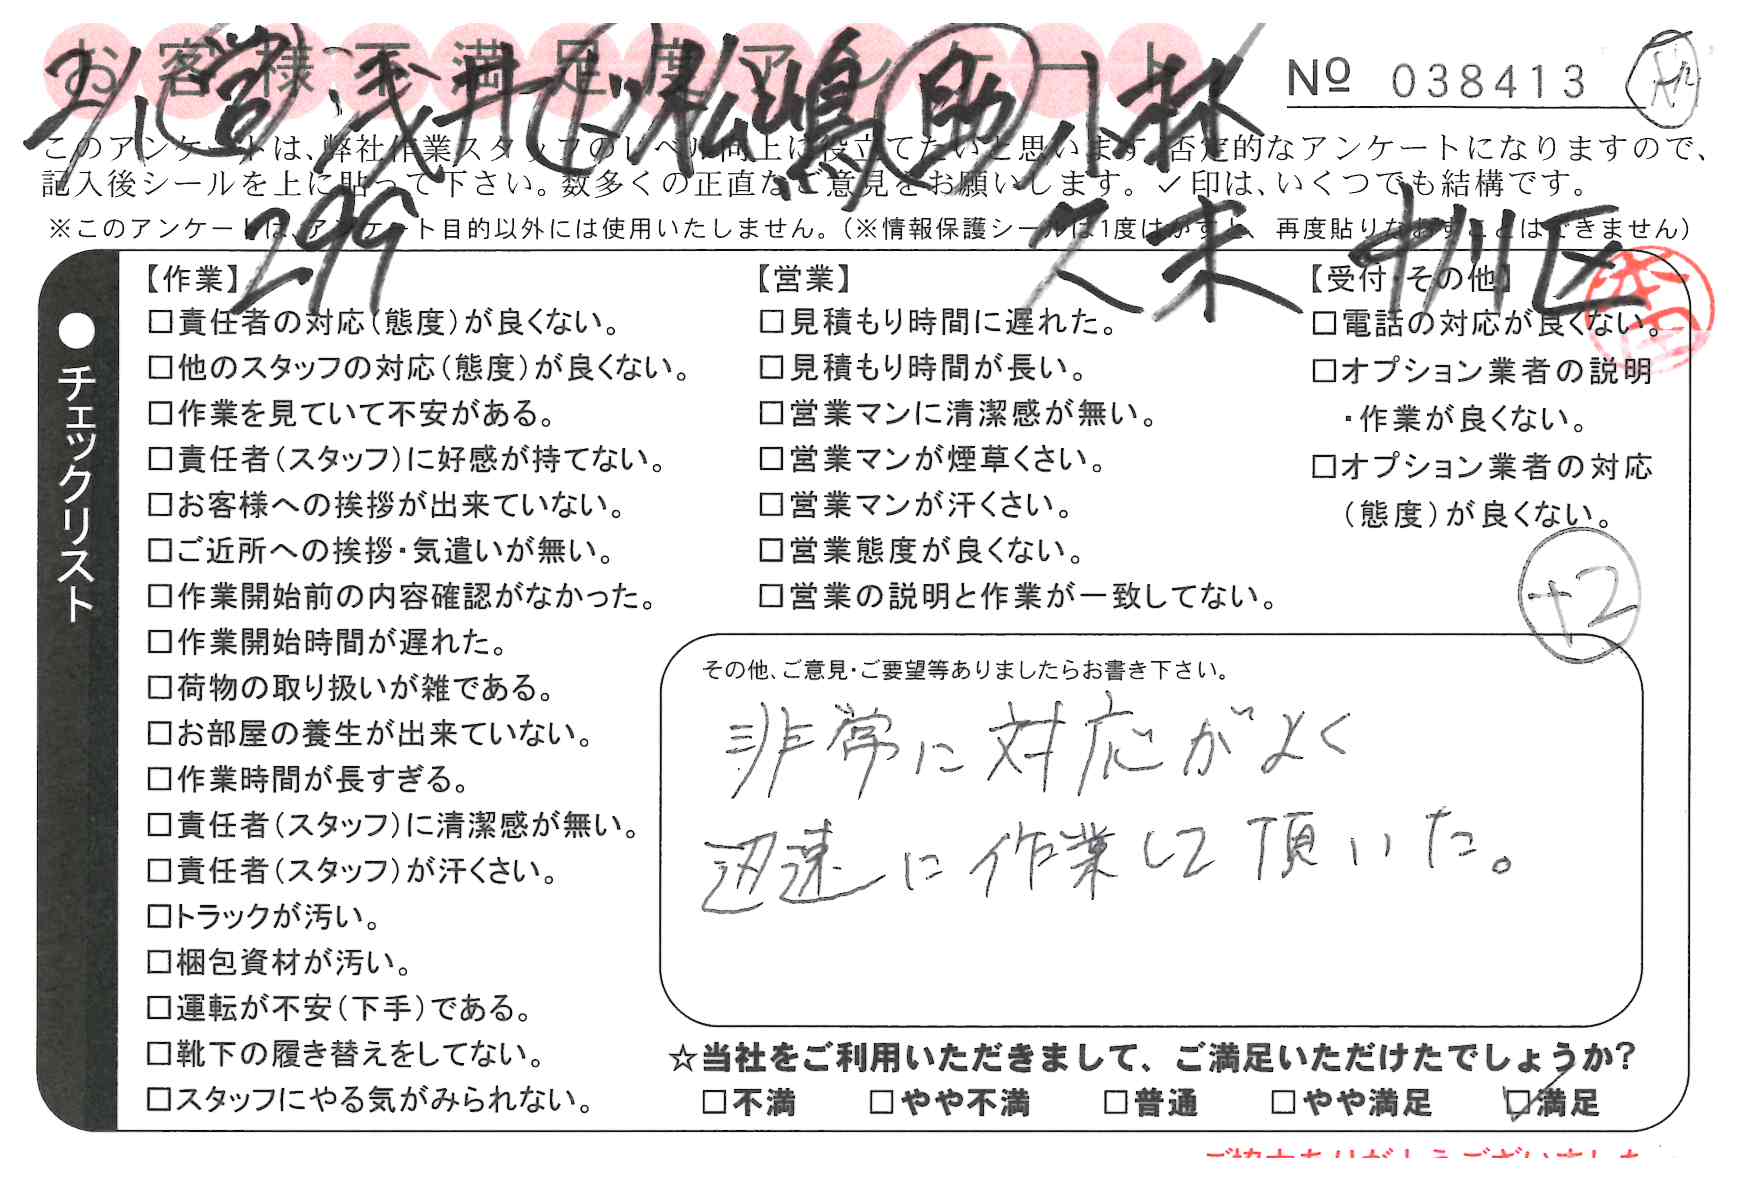 お客様不満足度アンケート
№ 038413
3/ ㊂営 浅井 松嶋 助 小林
このアンケートは、弊社作業スタッフのレベル向上に役立てたいと思います。否定的なアンケートになりますので、
記入後シールを上に貼って下さい。数多くの正直なご意見をお願いします。✓印は、いくつでも結構です。
※このアンケートは、アンケート目的以外には使用いたしません。(※情報保護シールは1度はがすと、再度貼りなおすことはできません)
299 久末 中川区
●チェックリスト
【作業】
□責任者の対応(態度)が良くない。
□他のスタッフの対応(態度)が良くない。
□作業を見ていて不安がある。
□責任者(スタッフ)に好感が持てない。
□お客様への挨拶が出来ていない。
□ご近所への挨拶・気遣いが無い。
□作業開始前の内容確認がなかった。
□作業開始時間が遅れた。
□荷物の取り扱いが雑である。
□お部屋の養生が出来ていない。
□作業時間が長すぎる。
□責任者(スタッフ)に清潔感が無い。
□責任者(スタッフ)が汗くさい。
□トラックが汚い。
□梱包資材が汚い。
□運転が不安(下手)である。
□靴下の履き替えをしてない。
□スタッフにやる気がみられない。
【営業】
□見積もり時間に遅れた。
□見積もり時間が長い。
□営業マンに清潔感が無い。
□営業マンが煙草くさい。
□営業マンが汗くさい。
□営業態度が良くない。
□営業の説明と作業が一致してない。
【受付・その他】
□電話の対応が良くない。
□オプション業者の説明
・作業が良くない。
□オプション業者の対応
(態度)が良くない。
+2
その他、ご意見・ご要望等ありましたらお書き下さい。
非常に対応がよく
迅速に作業して頂いた。
☆当社をご利用いただきまして、ご満足いただけたでしょうか?
□不満 □やや不満 □普通 □やや満足 ☑満足
ご協力ありがとうございました